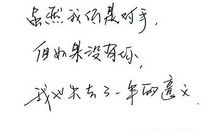 虽然我们是对手,
但如果没有你,
我也失去了一半的意义.